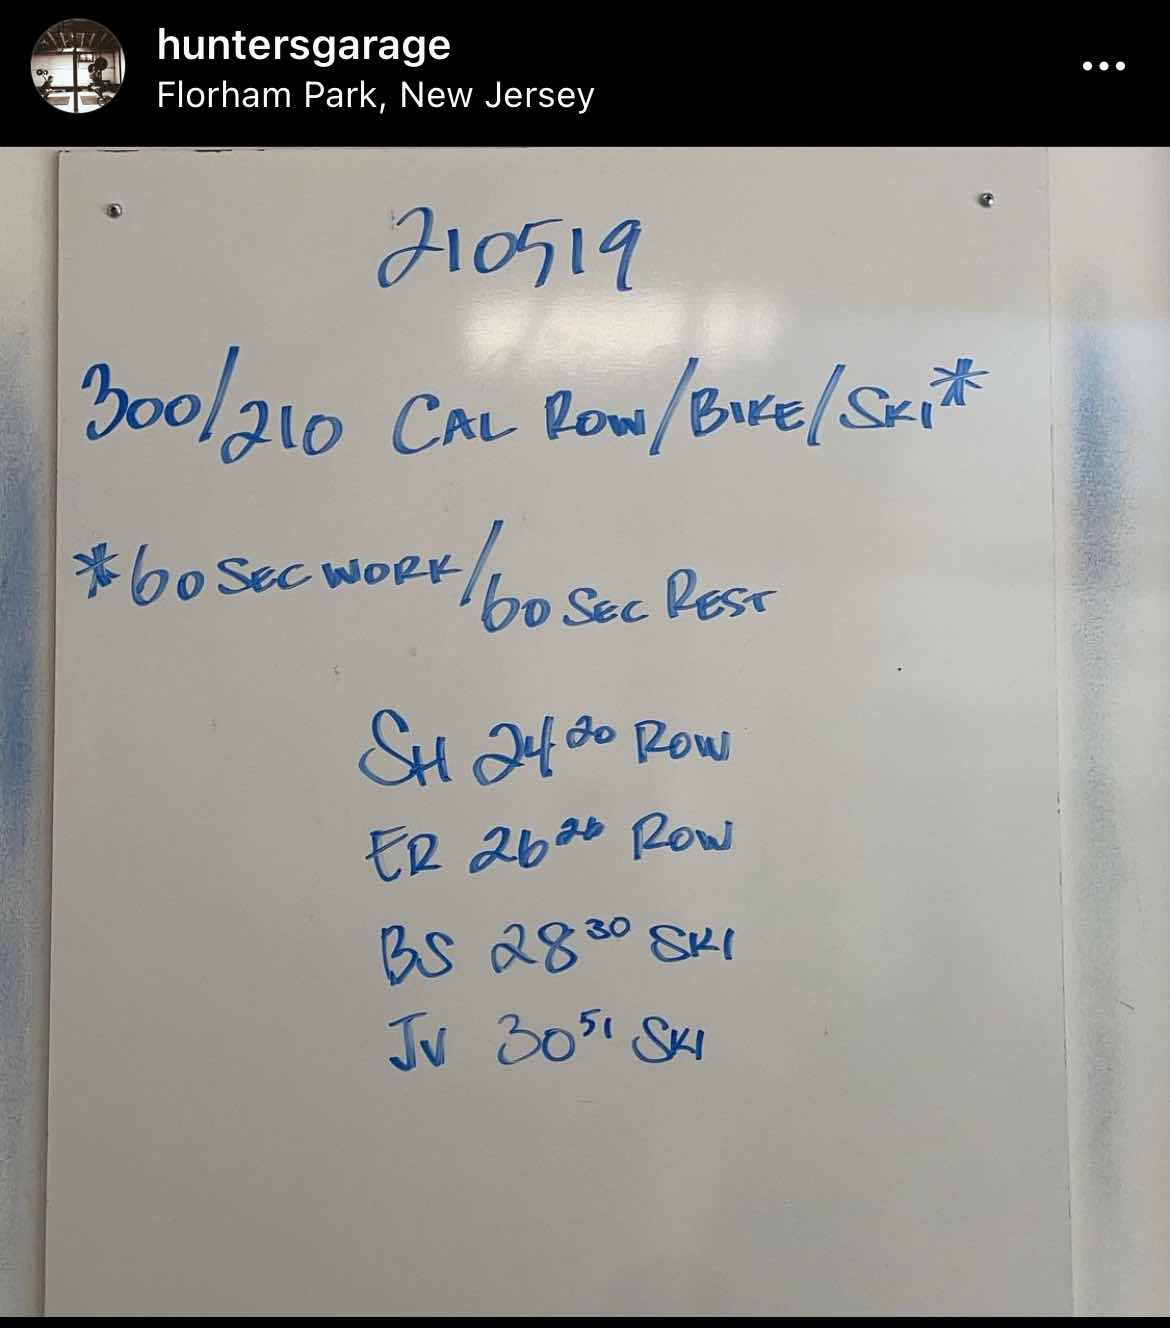 huntersgarage
Florham Park, New Jersey
210519
300/210 CAL ROW/BIKE/SKI*
*60 SEC WORK/60 SEC REST
SH 24 20 ROW
ER 26 26 ROW
BS 28 30 SKI
JV 30 51 SKI